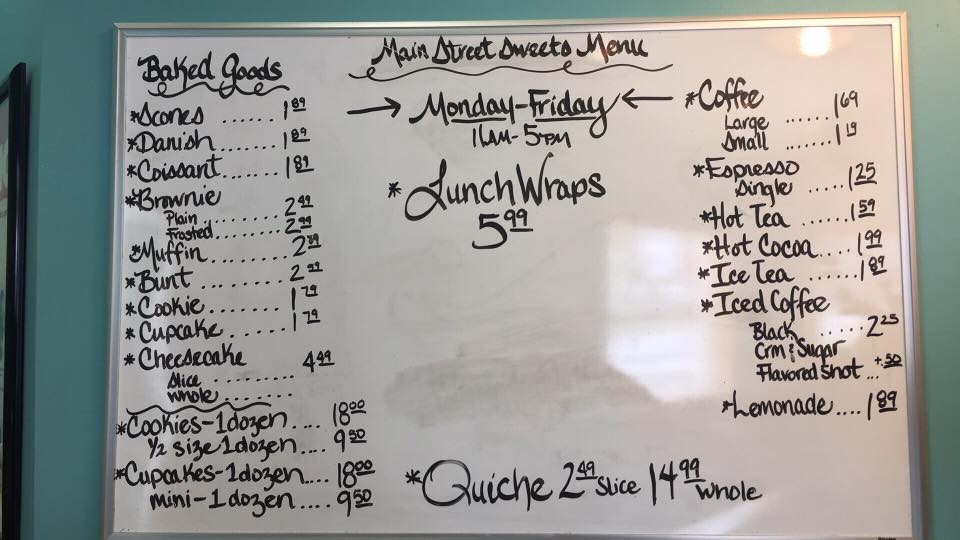 Main Street Sweets Menu
Baked Goods
*Scones ...... 1 89
*Danish ....... 1 89
*Coissant ....... 1 89
*Brownie
Plain ........ 2 49
Frosted ........ 2 99
*Muffin ......... 2 59
*Bunt ......... 2 99
*Cookie ........ 1 79
*Cupcake ....... 1 79
*Cheesecake 4 49
Slice .........
Whole .......
*Cookies-1dozen .... 18 00
1/2 size 1dozen .... 9 50
*Cupcakes-1dozen .... 18 00
mini-1dozen .... 9 50
→ Monday-Friday ←
11AM-5PM
*Lunch Wraps
5 99
*Quiche 2 49 Slice 14 99 Whole
*Coffee
Large ...... 1 69
Small ....... 1 19
*Espresso
Single ..... 1 25
*Hot Tea ...... 1 59
*Hot Cocoa .... 1 99
*Ice Tea ...... 1 89
*Iced Coffee
Black ..... 2 25
Crm & Sugar
Flavored Shot ... +.50
*Lemonade .... 1 89